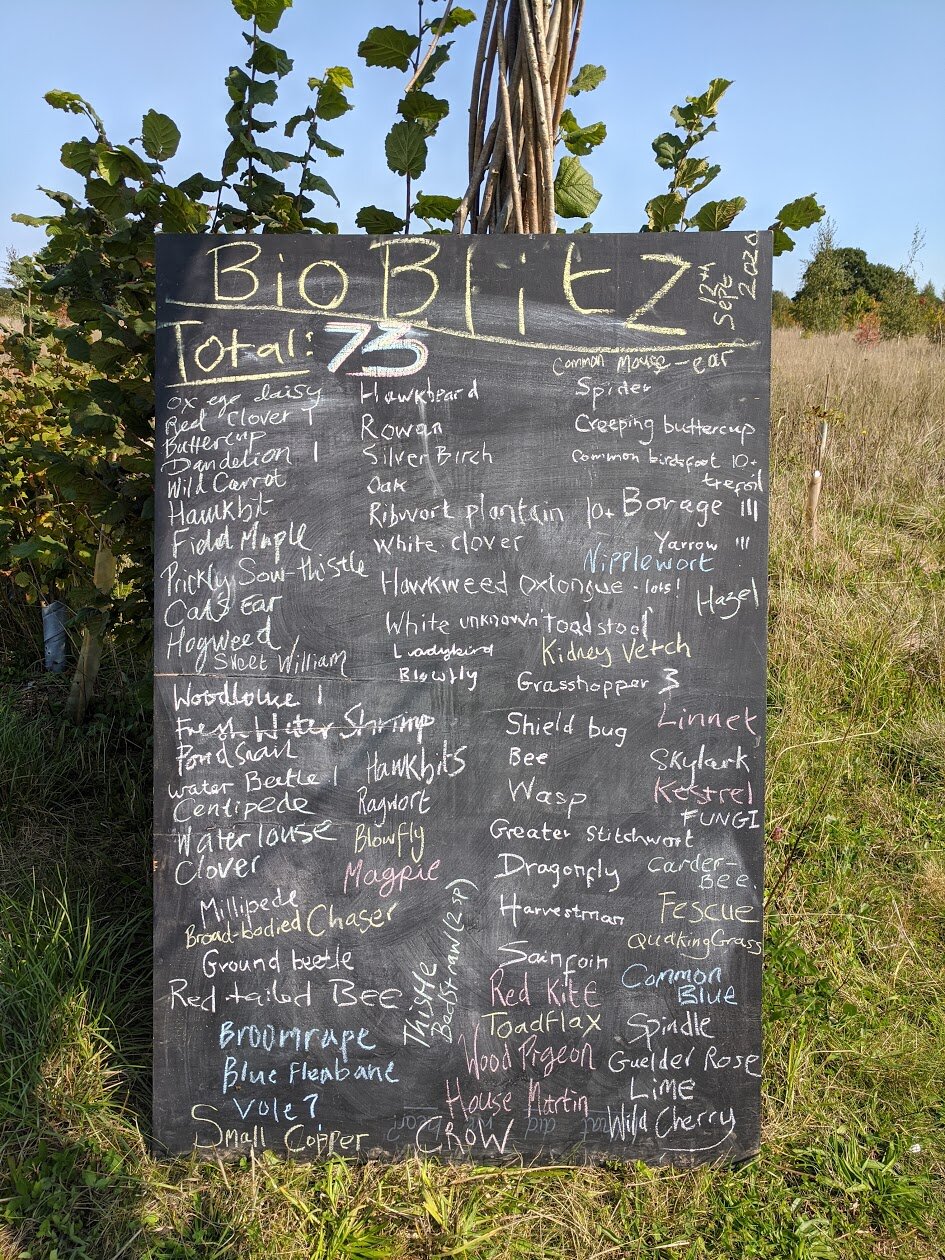 BioBlitz
12th Sept 2020
Total: 73
Ox eye daisy
Red Clover 1
Buttercup
Dandelion 1
Wild Carrot
Hawkbit
Field Maple
Prickly Sow-thistle
Cats Ear
Hogweed
Sweet William
Woodlouse 1
Fresh Water Shrimp
Pond snail
water Beetle 1
Centipede
Water louse
Clover
Millipede
Broad-bodied Chaser
Ground beetle
Red tailed Bee
Broomrape
Blue Fleabane
Vole?
Small Copper
Hawkbeard
Rowan
Silver Birch
Oak
Ribwort plantain 10+
White clover
Hawkweed Oxtongue - lots!
White unknown toadstool
Ladybird
Blowfly
Hawkbits
Ragwort
Blowfly
Magpie
Thistle
Bedstraw (2 sp)
Common Mouse-ear
Spider
Creeping buttercup
Common birdsfoot 10+
trefoil
Borage III
Yarrow III
Nipplewort
Hazel
Kidney Vetch
Grasshopper 3
Shield bug
Bee
Wasp
Greater Stitchwort
Dragonfly
Harvestman
Sainfoin
Red Kite
Toadflax
Wood Pigeon
House Martin
CROW
Linnet
Skylark
Kestrel
FUNGI
Carder-
Bee.
Fescue
Quaking Grass
Common
Blue
Spindle
Guelder Rose
Lime
Wild Cherry